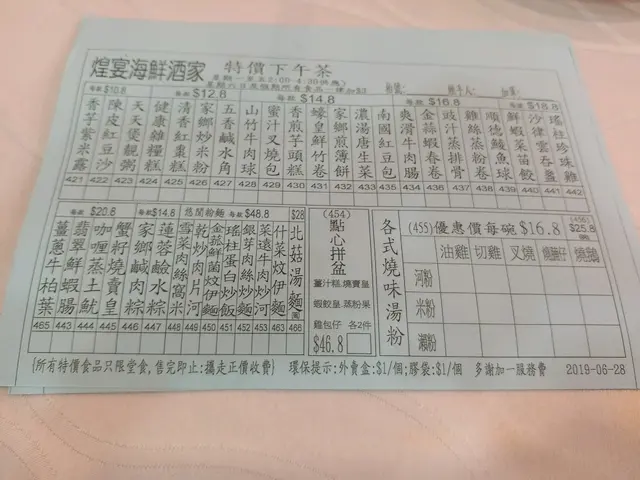 煌宴海鮮酒家 特價下午茶
每款$10.8 每款$12.8 每款$14.8 每款$16.8 每款$18.8
香芋紫米露 421
陳皮紅豆沙 422
天天煲靚粥 423
健康雜糧糕 424
清香紅棗糕 425
家鄉炒米粉 426
五香鹹水角 427
山竹牛肉球 428
蜜汁叉燒包 429
香煎芋頭糕 430
蠔皇鮮竹卷 431
家鄉煎薄餅 432
濃湯唐生菜 433
南國紅豆包 435
爽滑牛肉腸 434
金菇蝦春卷 436
豉汁蒸排骨 437
雞絲蒸粉卷 438
順德鯪魚球 439
鮮蝦菜苗餃 440
沙律雲吞盞 441
瑤柱珍珠雞 442
每款$20.8 每款$14.8 悠閒粉麵 每款$48.8 $28
薑蔥牛柏葉 465
翡翠鮮蝦腸 443
咖喱蒸土魷 444
蟹籽燒賣皇 445
家鄉鹹肉粽 446
蓮蓉鹼水粽 447
雪菜肉絲窩米 448
乾炒肉片河 449
金菇鮮菌炆伊麵 450
瑤柱蛋白炒飯 451
銀芽肉絲炒麵 452
菜遠牛肉炒河 453
什菜炆伊麵 463
北菇湯麵 466
(454)
點心拼盆
薑汁糕.燒賣皇
蝦餃皇.蒸粉果
雞包仔 各2件
$46.8
各式燒味湯粉
(455)優惠價每碗$16.8 (456) $25.8
油雞 切雞 叉燒 燒鵝
河粉
米粉
瀨粉
{所有特價食品只限堂食,售完即止:攜走正價收費} 環保提示:外賣盒:$1/個;膠袋:$1/個 多謝加一服務費 2019-06-28